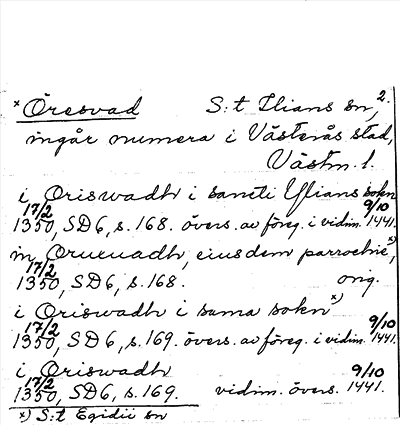 x Öresvad S:t Ilians sn, 2.
ingår numera i Västerås stad,
Västm. l.
i Oriswadh i sancti Ylians sokn
17/2 1350, SD6, s. 168. övers. av föreg. i vidim. 9/10 1441.
in Oruuadh, eiusdem parrochie, x)
17/2 1350, SD6, s. 168. orig.
i Oriswadh i sama sokn x)
17/2 1350, SD6, s. 169. övers. av föreg. i vidim. 9/10 1441.
i Oriswadh
17/2 1350, SD6, s. 169. vidim. övers. 9/10 1441.
x) S:t Egidii sn